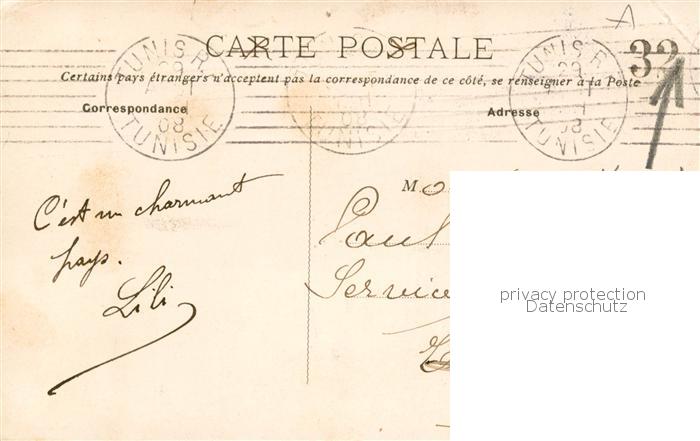 CARTE POSTALE
Certains pays étrangers n'acceptent pas la correspondance de ce côté, se renseigner à la Poste
Correspondance
Adresse
TUNIS R
08
TUNISIE
TUNIS R
08
TUNISIE
32
A
C'est un charmant
pays.
Lili
M
Paul
Service
privacy protection
Datenschutz